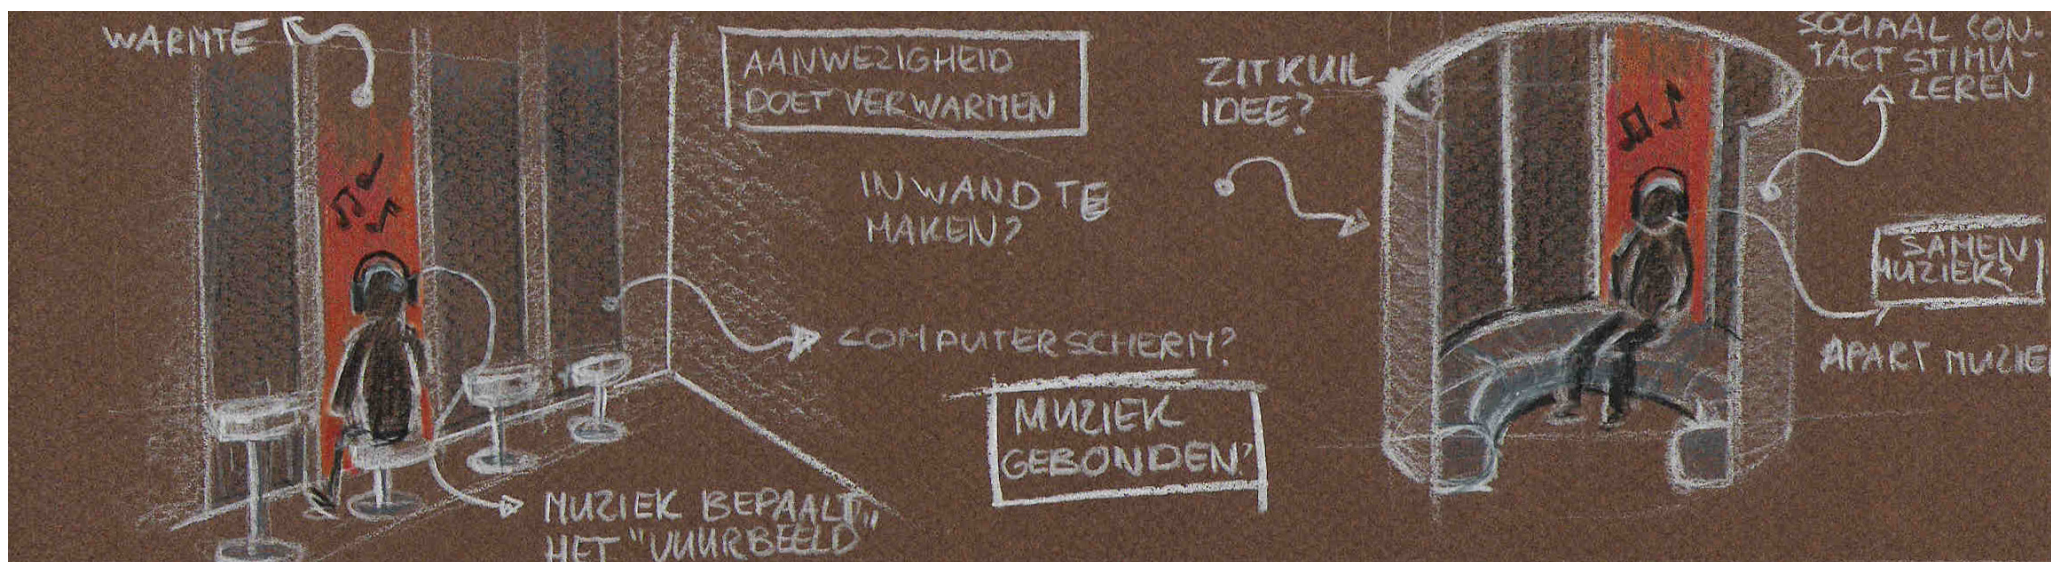 WARMTE
AANWEZIGHEID
DOET VERWARMEN
IN WAND TE
MAKEN?
COMPUTERSCHERM?
MUZIEK
GEBONDEN?
MUZIEK BEPAALT
HET "VUURBEELD"
ZITKUIL
IDEE?
SOCIAAL CON-
TACT STIMU-
LEREN
SAMEN
MUZIEK?
APART MUZIEK